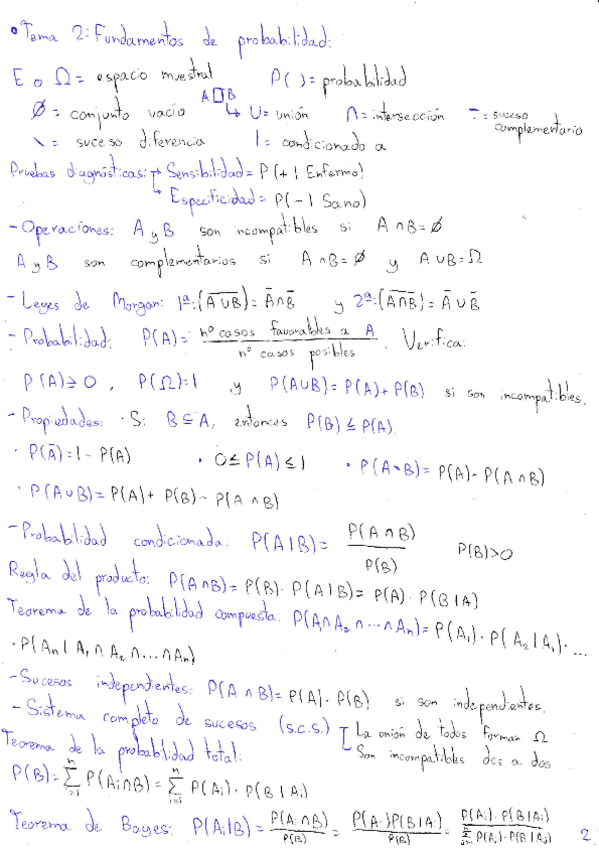 • Tema 2: Fundamentos de probabilidad:
E o Ω = espacio muestral P( ) = probabilidad
∅ = conjunto vacío A□B ↳ U = unión ∩ = intersección ‾ = suceso complementario
\ = suceso diferencia | = condicionado a
Pruebas diagnósticas: Sensibilidad = P(+ | Enfermo)
Especificidad = P(- | Sano)
- Operaciones: A y B son incompatibles si A∩B = ∅
A y B son complementarios si A∩B = ∅ y A∪B = Ω
- Leyes de Morgan: 1ª: (A̅ ̅∪̅ ̅B̅) = Ā∩B̄ y 2ª: (A̅ ̅∩̅ ̅B̅) = Ā∪B̄
- Probabilidad: P(A) = nº casos favorables a A / nº casos posibles. Verifica:
P(A) ≥ 0, P(Ω) = 1 y P(A∪B) = P(A) + P(B) si son incompatibles.
- Propiedades: · Si B ⊆ A, entonces P(B) ≤ P(A).
· P(Ā) = 1 - P(A) · 0 ≤ P(A) ≤ 1 · P(A\B) = P(A) - P(A∩B)
· P(A∪B) = P(A) + P(B) - P(A∩B)
- Probabilidad condicionada: P(A|B) = P(A∩B) / P(B) P(B) > 0
Regla del producto: P(A∩B) = P(B) · P(A|B) = P(A) · P(B|A)
Teorema de la probabilidad compuesta. P(A₁∩A₂∩···∩Aₙ) = P(A₁) · P(A₂|A₁) · ...
· P(Aₙ | A₁∩A₂∩...∩Aₙ)
- Sucesos independientes: P(A∩B) = P(A) · P(B) si son independientes.
- Sistema completo de sucesos (s.c.s.) La unión de todos forman Ω
Son incompatibles dos a dos
Teorema de la probabilidad total:
P(B) = ∑ⁿᵢ₌₁ P(Aᵢ∩B) = ∑ⁿᵢ₌₁ P(Aᵢ) · P(B|Aᵢ)
Teorema de Bayes: P(Aᵢ|B) = P(Aᵢ∩B) / P(B) = P(Aᵢ)P(B|Aᵢ) / P(B) = P(Aᵢ) · P(B|Aᵢ) / ∑ P(Aⱼ) · P(B|Aⱼ) 2